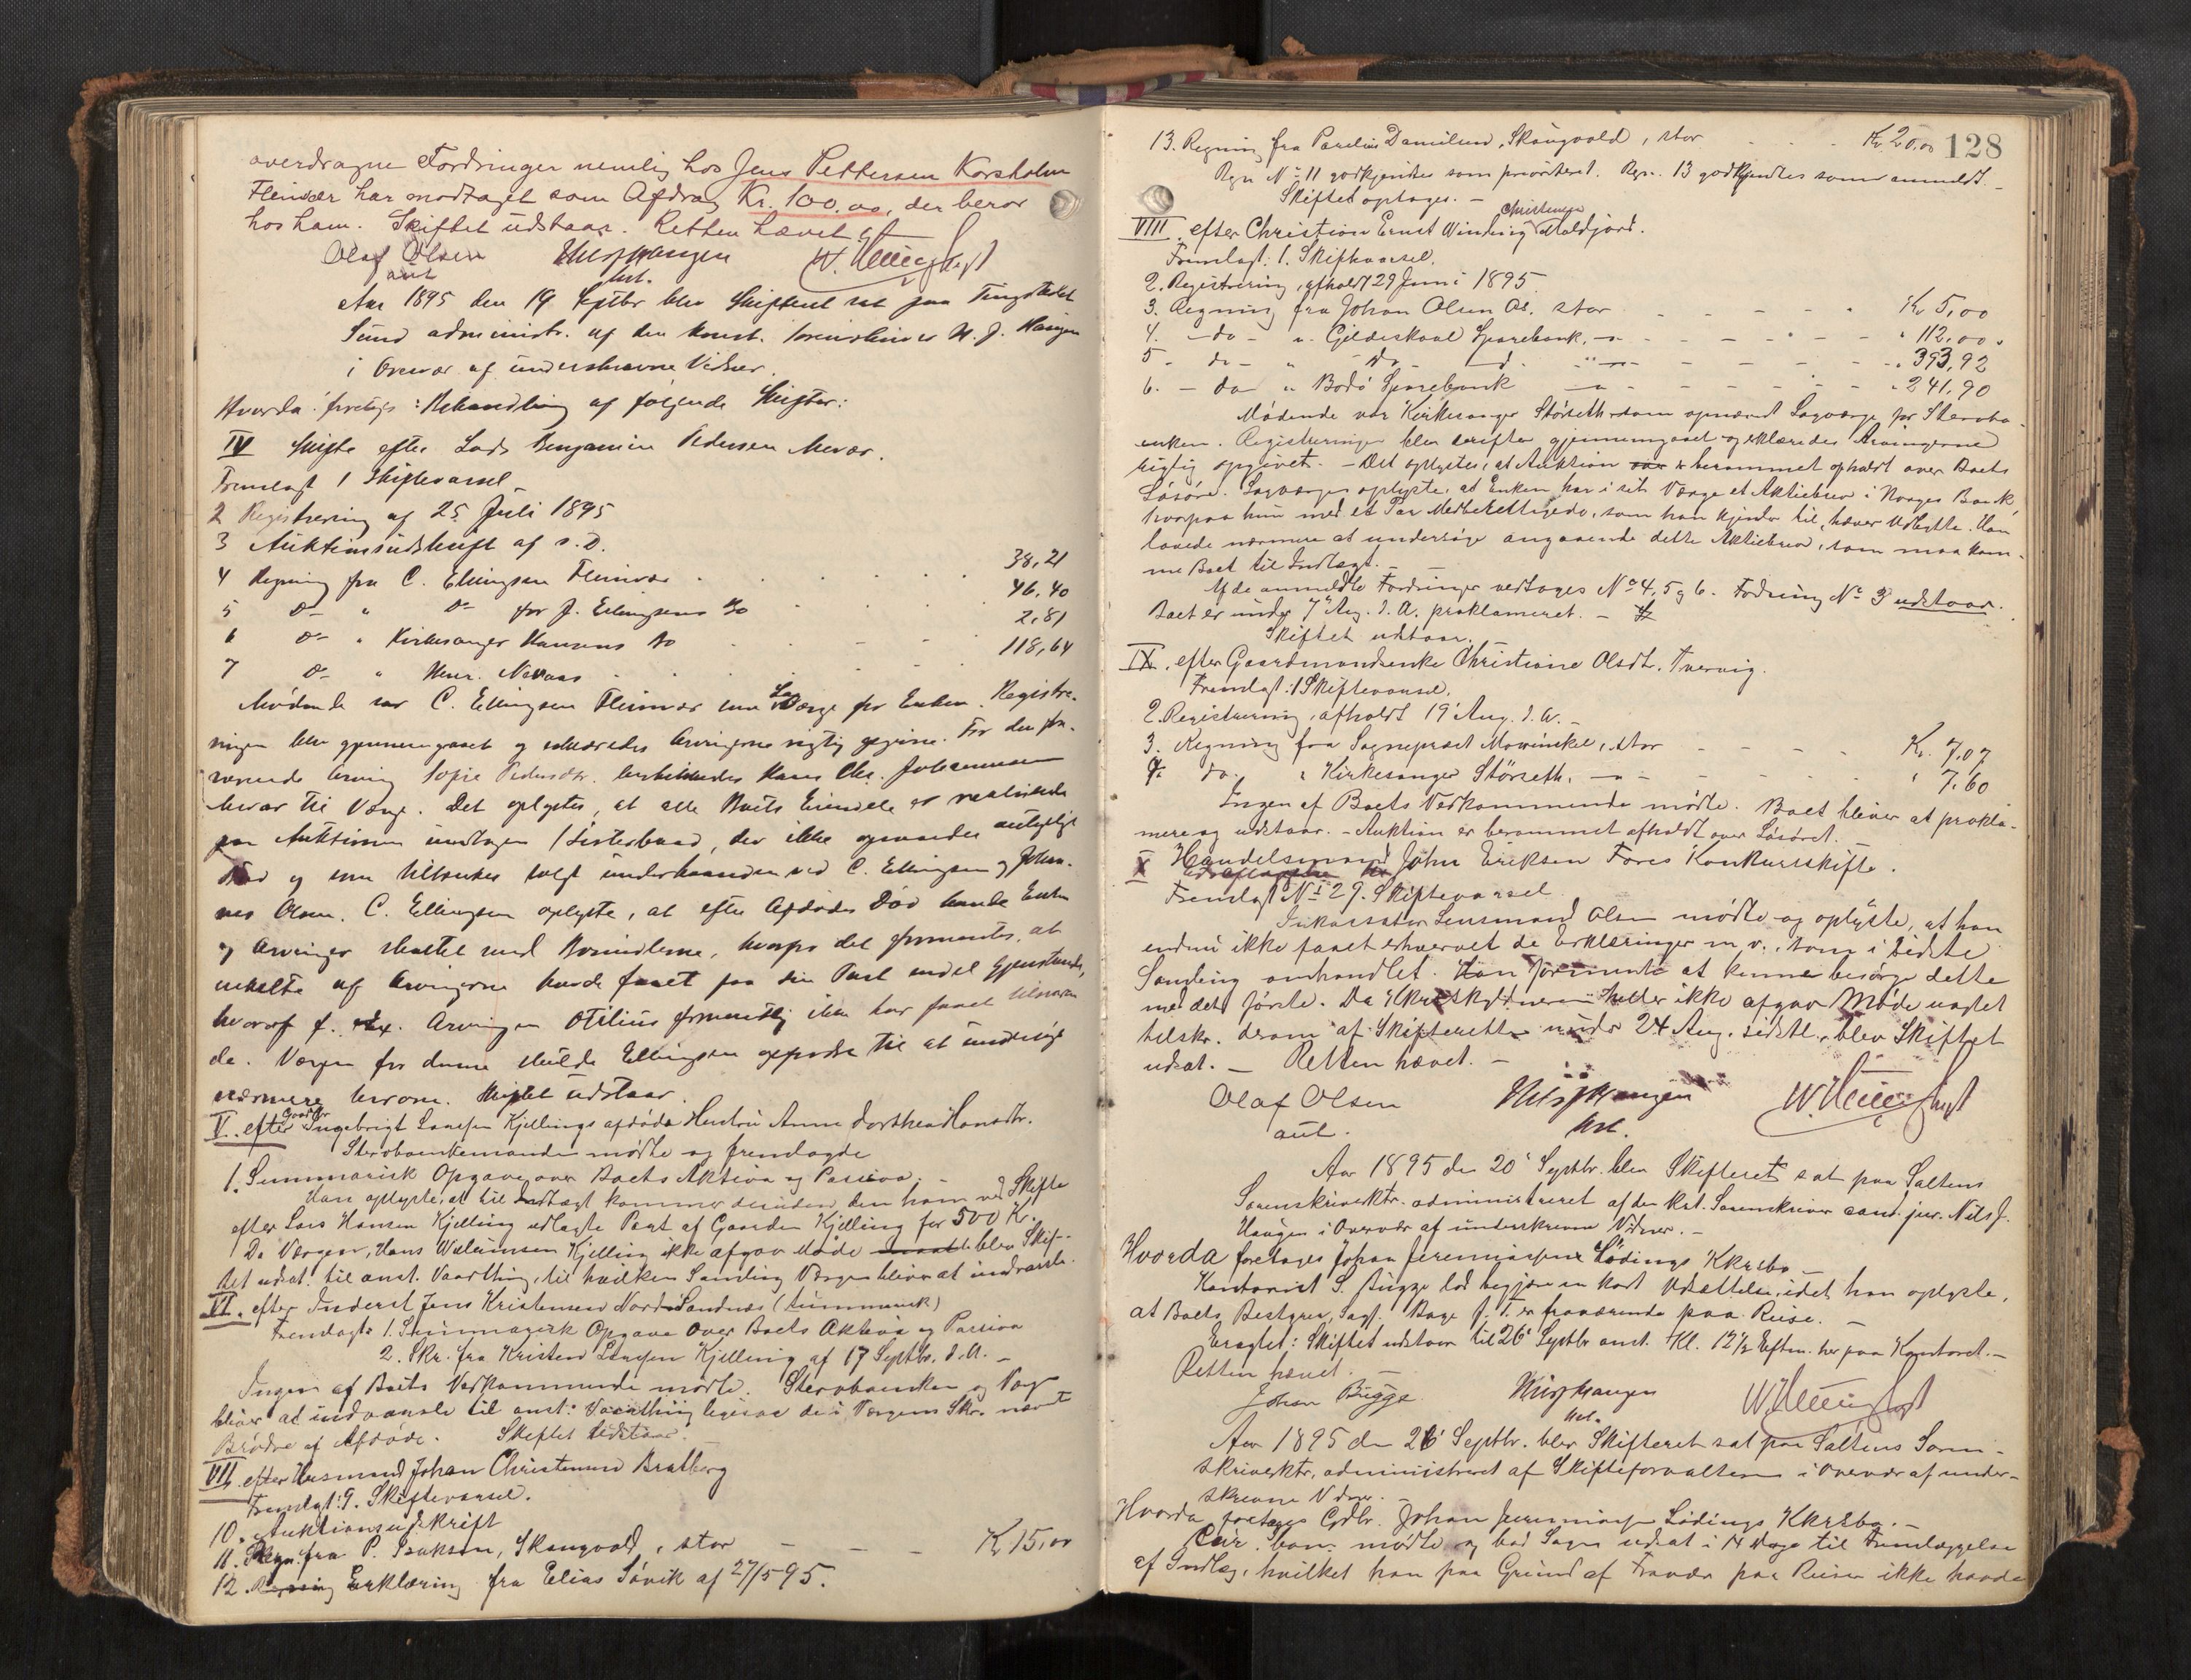 overdragne Fordringer nemlig hos Jens Pettersen Korsholm
Fleinvær har modtaget som Afdrag Kr. 100,00, der beror
hos ham. Skiftet udstaar. Retten hævet
Olaf Olsen
aut
kst.
Aar 1895 den 19 Septbr blev Skifteret sat paa Tingstedet
Sund administr. af den konst. Sorenskriver N. J. Haugen
i Overvær af underskrevne Vidner.
Hvorda foretoges Behandling af følgende Skifter:
IV Skifte efter Lods Benjamin Pedersen
Fremlagt 1 Skiftevarsel
2 Registrering af 25 Juli 1895
3 Auktionsudskrift af s. D.
4 Regning fra C. Ellingsen Fleinvær . . . 38,21
5 Do " Do for J. Ellingsens Bo . . . 46,40
6 Do " Kirkesanger Hansens Bo . . . 2,81
7 Do " Henr. . . . 118,64
Mødende var C. Ellingsen Fleinvær som Lagværge for Enken. Registre-
ringen blev gjennemgaaet og erklæredes Arvingerne rigtig opgivne. For den fra-
værende Arving Sofie Pedersdtr. beskikkedes Hans Chr. Johannessen
til Værge. Det oplystes, at alle Boets Eiendele er realiserede
paa Auktionen undtagen 1 , der ikke opnaaedes antageligt
Bud og som tiltænkes solgt underhaanden ved C. Ellingsen og Johan-
nes Olsen. C. Ellingsen oplyste, at efter Afdødes Død havde Enken
og Arvinger skaltet med Bomidlerne, hvorfor det formentes, at
enkelte af Arvingerne havde faaet paa sin Part endel Gjenstande,
hvoraf f. Ex. Arvingen Otilius formentlig ikke har faaet tilsvaren
de. Værgen for denne skulde Ellingsen opfordre til at undersøge
nærmere herom. Skiftet udstaar.
V. efter Gaardbr Ingebrigt Larsen Kjellings afdøde Hustru Anne Dorthea Hansdtr.
Stervboenkemanden mødte og fremlagde
1. Summarisk Opgave over Boets Aktiva og Passiva. -
Han oplyste, at til Indtægt kommer desuden den ham ved Skifte
efter Lars Hansen Kjelling udlagte Part af Gaarden Kjelling for 500 Kr.
Da Værgen, Hans Wilumsen Kjelling ikke afgav Møde blev Skif-
tet udsat til anst. Vaarthing, til hvilken Samling Værgen bliver at indvarsle.
VI. efter Inderst Jens Kristensen Nord-Sandnæs (summarisk)
Fremlagt: 1. Summarisk Opgave over Boets Aktiva og Passiva
2. Skr. fra Kristen Larsen Kjelling af 17 Septbr. d. A. -
Ingen af Boets Vedkommende mødte. Stervboenken og Værge
bliver at indvarsle til anst. Vaarthing ligesaa de i Værgens Skr. nævnte
Brødre af Afdøde. Skiftet udstaar.
VII. efter Husmand Johan Christensen Bratberg
Fremlagt: 9. Skiftevarsel.
10. Auktionsudskrift
11. Regn. fra P. Isaksen, Skaugvold, stor - - - Kr 15,00
12. Erklæring fra Elias Søvik af 27/5 95.
128
13. Regning fra Parelius Danielsen, Skaugvold, stor . . . Kr. 20,00
Regn No 11 godkjendtes som prioriteret. Regn. 13 godkjendtes som anmeldt. -
Skiftet optages. -
VIII. efter Christian Ernst Winding Christensen
Fremlagt: 1. Skiftevarsel.
2. Registrering, afholdt 29 Juni 1895
3. Regning fra Johan Olsen Øl. stor - - - Kr 5,00
4. - do - " Gildeskaal Sparebank, - - - " 112,00
5 - do - " - do - - - " 393,92
6. - do " Bodø Sparebank - - - " 241,90
Mødende var Kirkesanger Størseth som opnævnt Lagværge for Stervbo-
enken. Registreringen blev derefter gjennemgaaet og erklæredes Arvingerne
rigtig opgivet. - Det oplystes, at Auktion er berammet afholdt over Boets
Løsøre. Lagværgen oplyste, at Enken har i sit Værge et Aktiebrev i Norges Bank,
hvorpaa hun med et Par Medberettigede, som han kjender til, hæver Udbytte. Han
lovede nærmere at undersøge angaaende dette Aktiebrev, som maa kom-
me Boet til Indtægt. -
Af de anmeldte Fordringer vedtages No 4, 5 og 6. Fordring No 3 udstaar.
Boet er under 7 Aug. d. A. proklameret. -
Skiftet udstaar.
IX. efter Gaardmandsenke Christiane Olsdt. Tvervig.
Fremlagt: 1 Skiftevarsel.
2. Registrering, afholdt 19 Aug. d. A. -
3. Regning fra Sogneprest Mowinckel, stor - - - Kr. 7,07
4. do. " Kirkesanger Størseth, - " - - - " 7,60
Ingen af Boets Vedkommende mødte. Boet bliver at prokla-
mere og udstaar. - Auktion er berammet afholdt over Løsøret.
X Handelsmand John Eriksen Fores Konkursskifte.
Fremlagt No 29. Skiftevarsel
Inkassator Lensmand Olsen mødte og oplyste, at han
endnu ikke faaet erhvervet de Erklæringer m. v., som i sidste
Samling omhandlet. Han formente at kunne besørge dette
med det første. Da Kkrsskyldneren heller ikke afgav Møde uagtet
tilskr. derom af Skifteretten under 24 Aug. sidstl., blev Skiftet
udsat. - Retten hævet. -
Olaf Olsen
aut.
kst.
Aar 1895 den 20 Septbr. blev Skifteret sat paa Saltens
Sorenskriverktr. administreret af den kst. Sorenskriver cand. jur. Nils J.
Haugen i Overvær af underskrevne Vidner. -
Hvorda foretoges Johan Jeremiassens Lødings Kkrsbo -
Kontorist S. Bugge lod begjære en kort Udsættelse, idet han oplyste,
at Boets Bestyrer, Sagf. Bage f. T. er fraværende paa Reise. -
Eragtet: Skiftet udstaar til 26 Septbr anst. Kl. 12 1/2 Eftm. her paa Kontoret. -
Retten hævet. -
Johan Bugge
kst.
Aar 1895 den 26 Septbr. blev Skifteret sat paa Saltens Soren-
skriverktr, administreret af Skifteforvalteren i Overvær af under-
skrevne Vidner. -
Hvorda foretoges Gdbr. Johan Jeremiassen Lødings Kkrsbo. -
Cur. bon. mødte og bad Sagen udsat i 14 Dage til Fremlæggelse
af Indlæg, hvilket han paa Grund af Fravær paa Reiser ikke havde